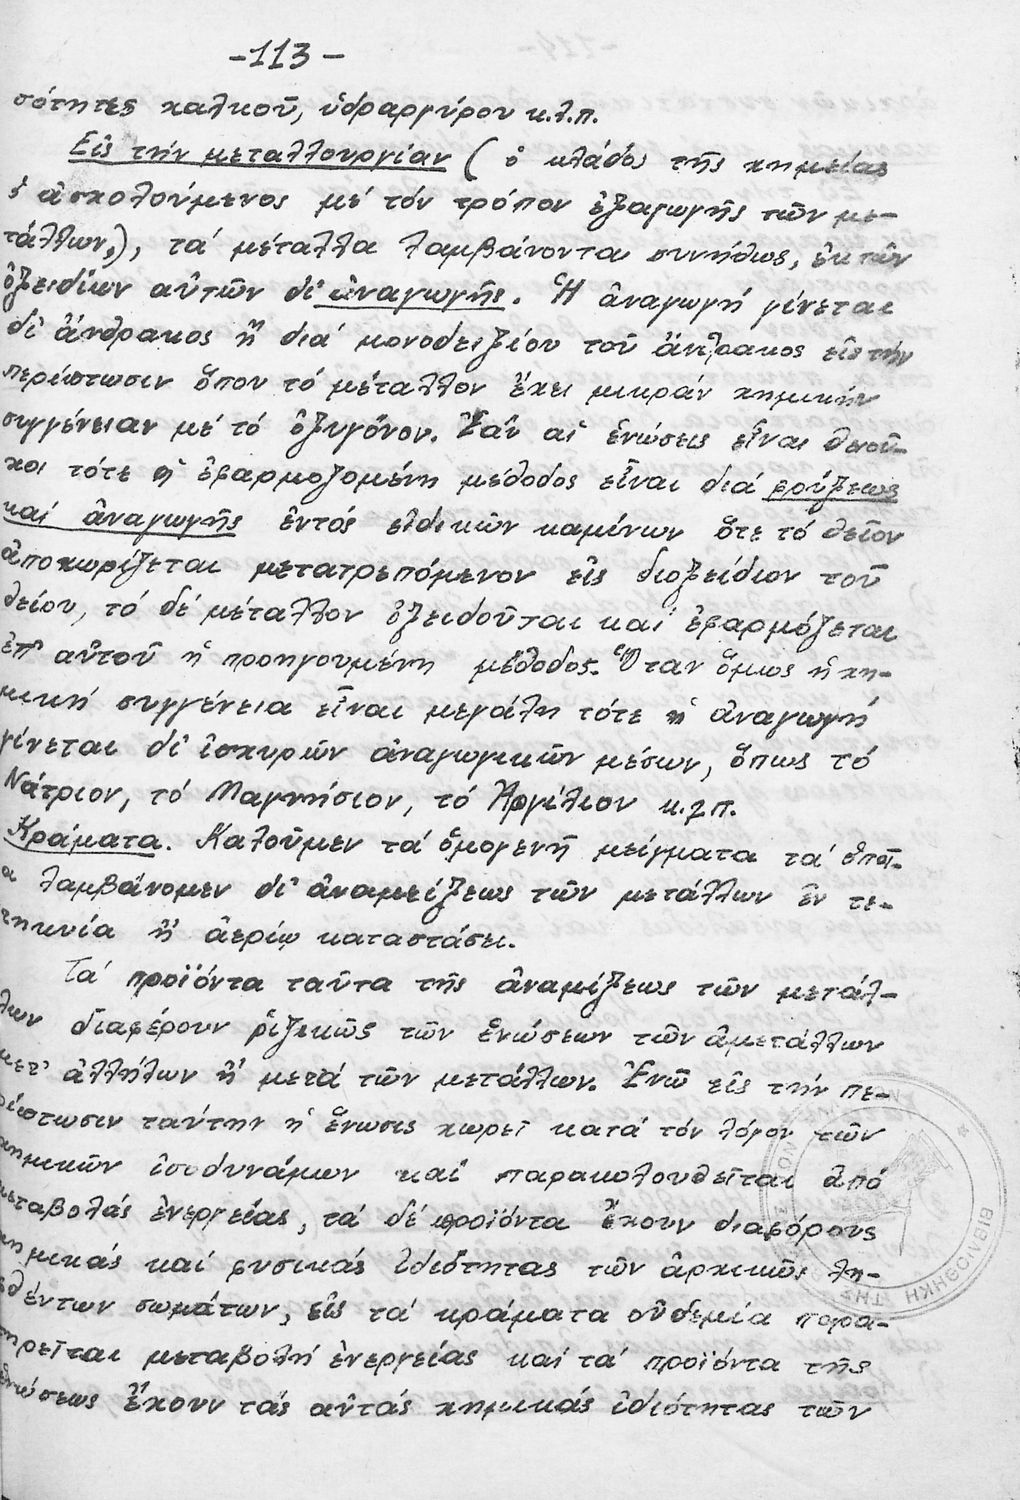 -113-
σότητες χαλκοῦ, ὑδραργύρου κ.λ.π.
Εἰς τήν μεταλλουργίαν (ὁ κλάδος τῆς χημείας
ὁ ἀσχολούμενος μέ τόν τρόπον ἐξαγωγῆς τῶν με-
τάλλων,), τά μέταλλα λαμβάνονται συνήθως, ἐκ τῶν
ὀξειδίων αὐτῶν δι' ἀναγωγῆς. Ἡ ἀναγωγή γίνεται
δι' ἄνθρακος ἤ διά μονοδειξίου τοῦ ἄνθρακος εἰς τήν
περίπτωσιν ὅπου τό μέταλλον ἔχει μικράν χημικήν
συγγένειαν μέ τό ὀξυγόνον. Ἐάν αἱ ἑνώσεις εἶναι θειοῦ-
χοι τότε ἡ ἐφαρμοζομένη μέθοδος εἶναι διά φρύξεως
καί ἀναγωγῆς ἐντός εἰδικῶν καμίνων ὅτε τό θεῖον
ἀποχωρίζεται μετατρεπόμενον εἰς διοξείδιον τοῦ
θείου, τό δέ μέταλλον ὀξειδοῦται καί ἐφαρμόζεται
ἐπ' αὐτοῦ ἡ προηγουμένη μέθοδος. Ὅταν ὅμως ἡ χη-
μική συγγένεια εἶναι μεγάλη τότε ἡ ἀναγωγή
γίνεται δι' ἰσχυρῶν ἀναγωγικῶν μέσων, ὅπως τό
Νάτριον, τό Μαγνήσιον, τό Ἀργίλιον κ.λ.π.
Κράματα. Καλοῦμεν τά ὁμογενῆ μείγματα τά ὁποῖ-
α λαμβάνομεν δι' ἀναμείξεως τῶν μετάλλων ἐν τε-
τηκυία ἤ ἀερίῳ καταστάσει.
Τά προϊόντα ταῦτα τῆς ἀναμίξεως τῶν μετάλ-
λων διαφέρουν ριζικῶς τῶν ἑνώσεων τῶν ἀμετάλλων
μετ' ἀλλήλων ἤ μετά τῶν μετάλλων. Ἐνῶ εἰς τήν πε-
ρίπτωσιν ταύτην ἡ ἕνωσις χωρεῖ κατά τόν λόγον τῶν
χημικῶν ἰσοδυνάμων καί παρακολουθεῖται ἀπό
μεταβολάς ἐνεργείας, τά δέ προϊόντα ἔχουν διαφόρους
χημικάς καί φυσικάς ἰδιότητας τῶν ἀρχικῶς λη-
φθέντων σωμάτων, εἰς τά κράματα οὐδεμία παρα-
τηρεῖται μεταβολή ἐνεργείας καί τά προϊόντα τῆς
ἑνώσεως ἔχουν τάς αὐτάς χημικάς ἰδιότητας τῶν
ΒΙΒΛΙΟΘΗΚΗ ΤΗΣ